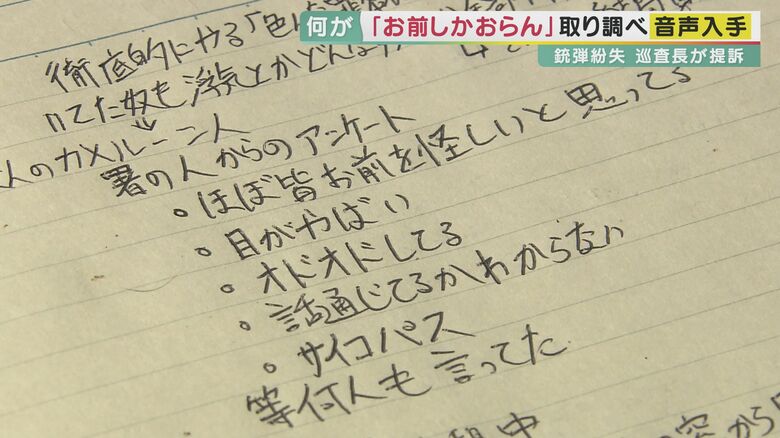 何が「お前しかおらん」取り調べ 音声入手
銃弾紛失 巡査長が提訴
徹底的にやる「色
いてた奴も浮気とかどん
人のカメルーン人
署の人からのアンケート
・ほぼ皆お前を怪しいと思ってる
・目がやばい
・オドオドしてる
・話通じてるかわからない
・サイコパス
等何人も言ってた
中
から